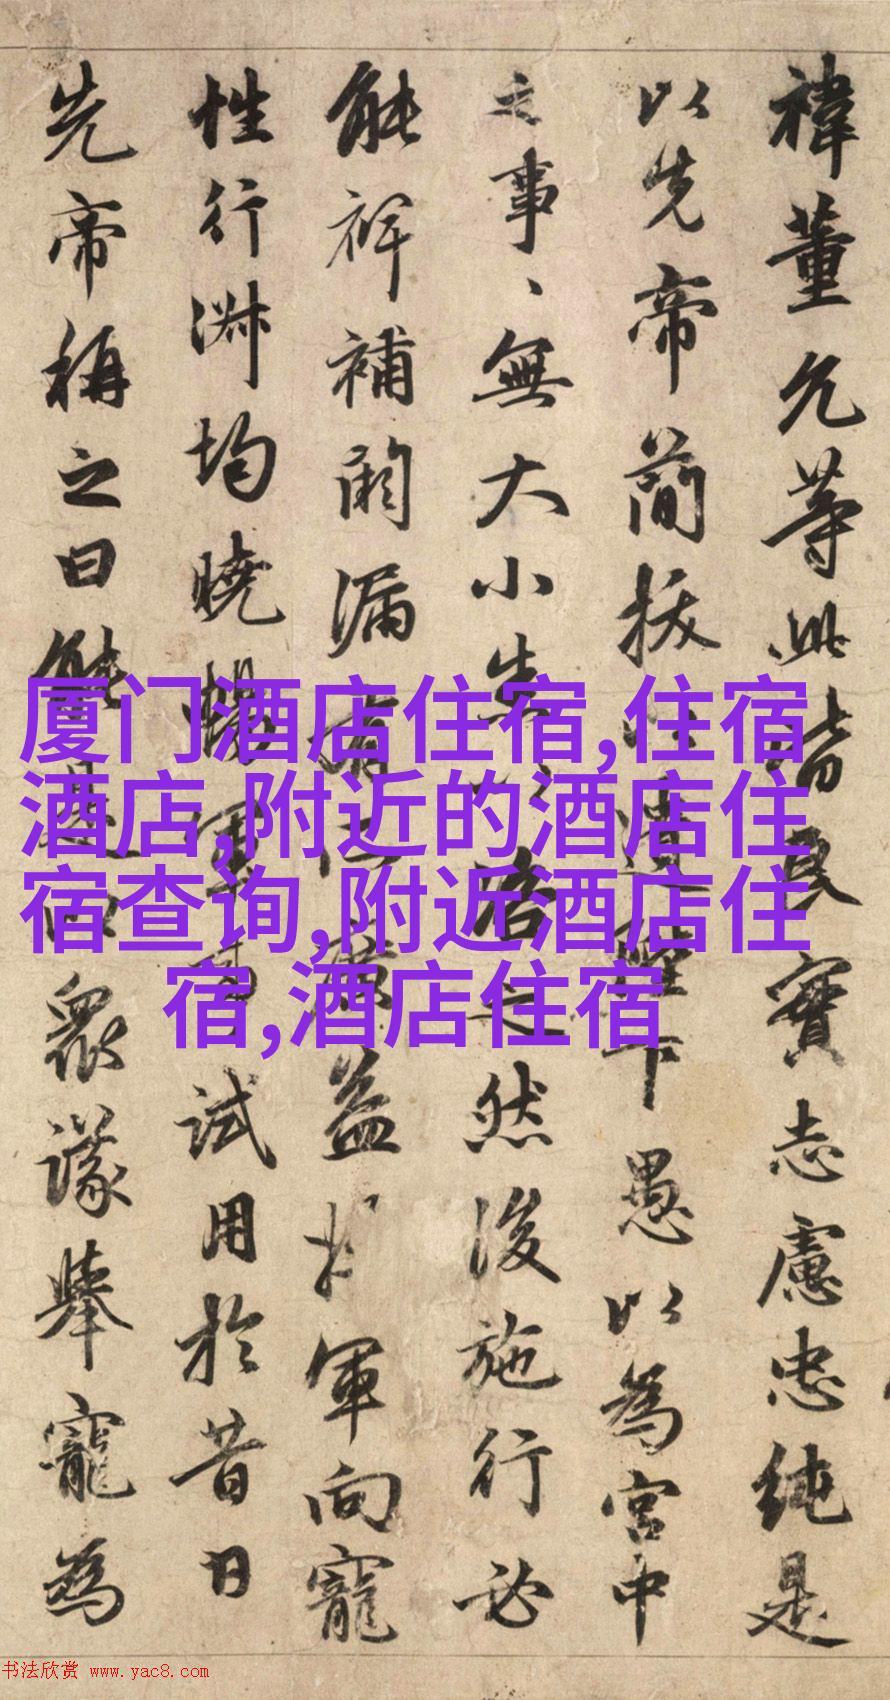 禕董允等此皆良實志慮忠純是
以先帝簡拔以遺陛下愚以為宮中
之事、無大小悉、以咨之然後施行必
能裨補闕漏有所廣益將軍向寵
性行淋均曉暢軍事試用於昔日
先帝稱之曰能是以眾議舉寵為
厦门酒店住宿,住宿
酒店,附近的酒店住
宿查询,附近酒店住
宿,酒店住宿
书法欣赏 www.yac8.com